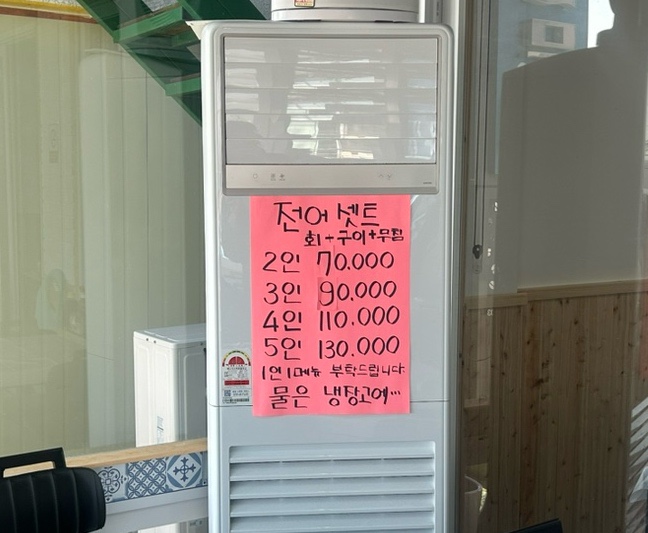 전어 셋트
회+구이+무침
2인 70.000
3인 90.000
4인 110.000
5인 130.000
1인 1메뉴 부탁드립니다
물은 냉장고에...